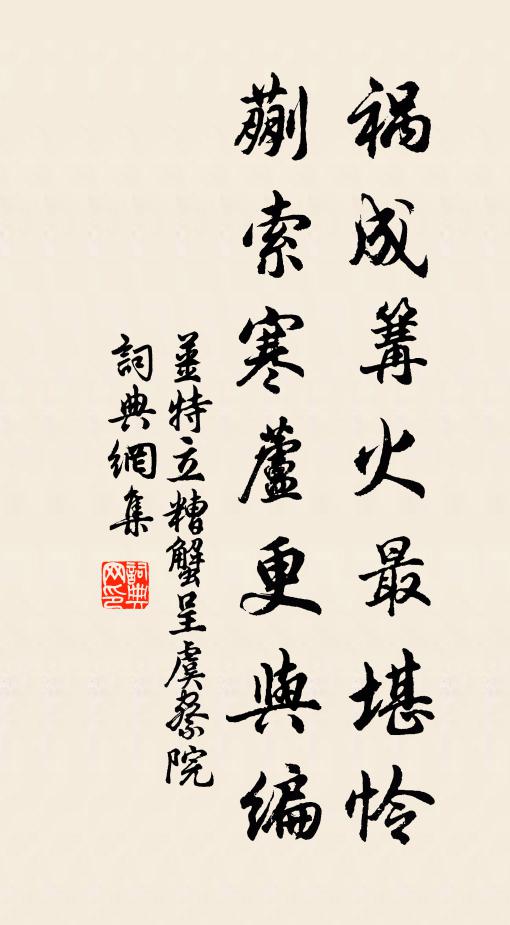 祸成篝火最堪怜
蒯索寒蘆更與編
薑特立糟蟹呈虞察院
詞典網集
詞典网印